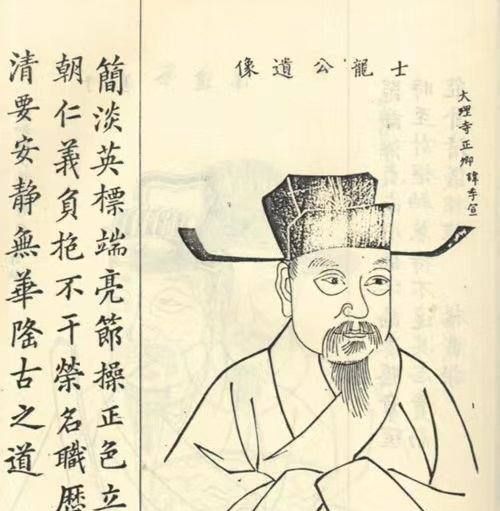 大理寺正卿諱孝宣
士龍公遺像
簡淡英標端亮節操正色立
朝仁義負抱不干榮名職歷
清要安靜無華隆古之道